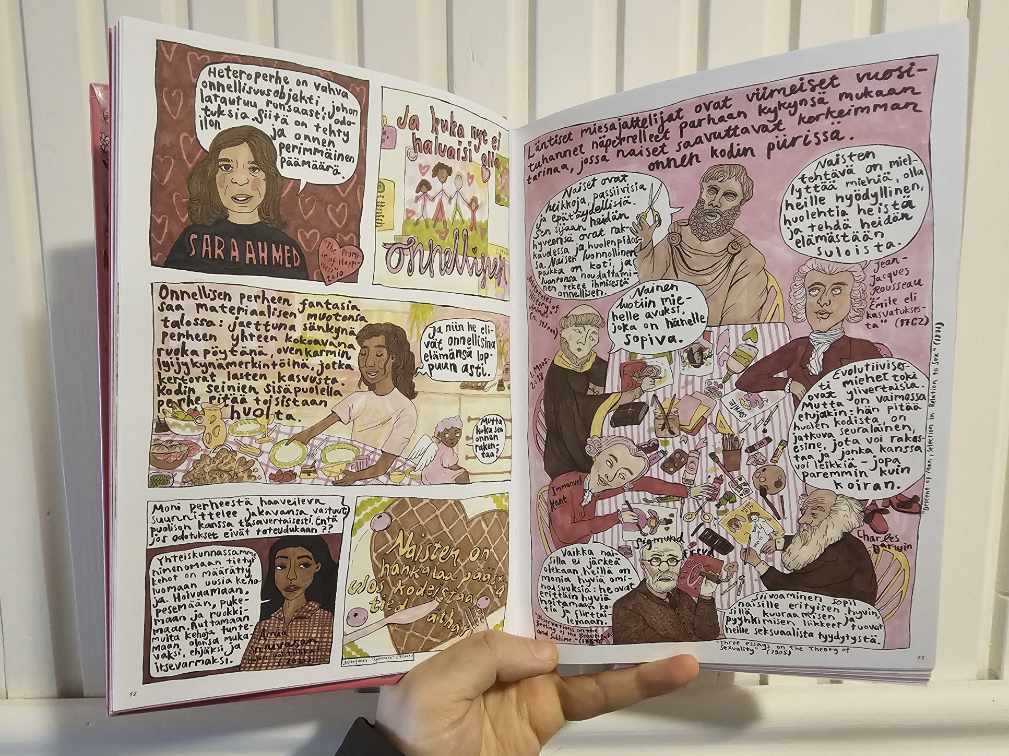 Heteroperhe on vahva
onnellisuusobjekti, johon
latautuu runsaasti odo-
tuksia. Siitä on tehty
ilon ja onnen
perimmäinen
päämäärä.
SARA AHMED
2010
Ja kuka nyt ei
haluaisi olla
onnellinen
Onnellisen perheen fantasia
saa materiaalisen muotonsa
talossa: jaettuna sänkynä
perheen yhteen kokoavana
ruokapöytänä, ovenkarmin
lyijykynämerkintöinä, jotka
kertovat lasten kasvusta
kodin seinien sisäpuolella
perhe pitää toisistaan
huolta.
Ja niin he eli-
vät onnellisina
elämänsä lop-
puun asti.
Mutta
kuka sen
onnen
raken-
taa?
Moni perheestä haaveileva
suunnittelee jakavansa vastuut
puolison kanssa tasavertaisesti. Entä
jos odotukset eivät toteudukaan??
Yhteiskunnassamme
nimenomaan tietyt
kehot on määrätty
luomaan uusia keho-
ja. Holvaamaan,
pesemään, puke-
maan ja ruokki-
maan. Auttamaan
muita kehoja tunte-
maan olonsa muka-
vaksi, ehjäksi ja
itsevarmaksi.
Naisten on
hankalaa päästä
48
Läntiset miesajattelijat ovat viimeiset vuosi-
tuhannet näperrelleet parhaan kykynsä mukaan
tarinaa, jossa naiset saavuttavat korkeimman
onnen kodin piirissä.
Naiset ovat
heikkoja, passiivisia
ja epätäydellisiä.
Sen sijaan heidän
hyveensä ovat rak-
kaudessa ja huolenpidos-
sa. Naisen luonnollinen
paikka on koti, ja
luontonsa noudattami-
nen tekee ihmisestä
onnellisen.
Naisten
tehtävä on miel-
lyttää miehiä, olla
heille hyödyllinen,
huolehtia heistä
ja tehdä heidän
elämästään
suloista.
Jean-
Jacques
Rousseau
Émile eli
kasvatukses-
ta" (1762)
Nainen
luotiin mie-
helle avuksi,
joka on hänelle
sopiva.
Moos.
2:18
Evolutiivises-
ti miehet toki
ovat ylivertaisia.
Mutta on vaimossa
etujakin: hän pitää
huolen kodista, on
jatkuva seuralainen,
esine, jota voi rakas-
taa ja jonka kanssa
voi leikkiä – jopa
paremmin kuin
koiran.
"Descent of Man, Selection in Relation to Sex" (1871)
Immanuel
Kant
Charles
Darwin
Sigmund
Freud
Vaikka nai-
silla ei järkeä
olekaan heillä on
monia hyviä omi-
naisuuksia: he ovat
erittäin hyviä
hoitamaan ko-
tia ja flirttai-
lemaan.
"Observations on the
Feeling of the Beautiful
and Sublime" (1764)
Siivoaminen sopii
naisille erityisen hyvin
sillä kuuraamisen ja
pyyhkimisen liikkeet tuovat
heille seksuaalista tyydytystä.
"Three essays on the Theory of
Sexuality" (1905)